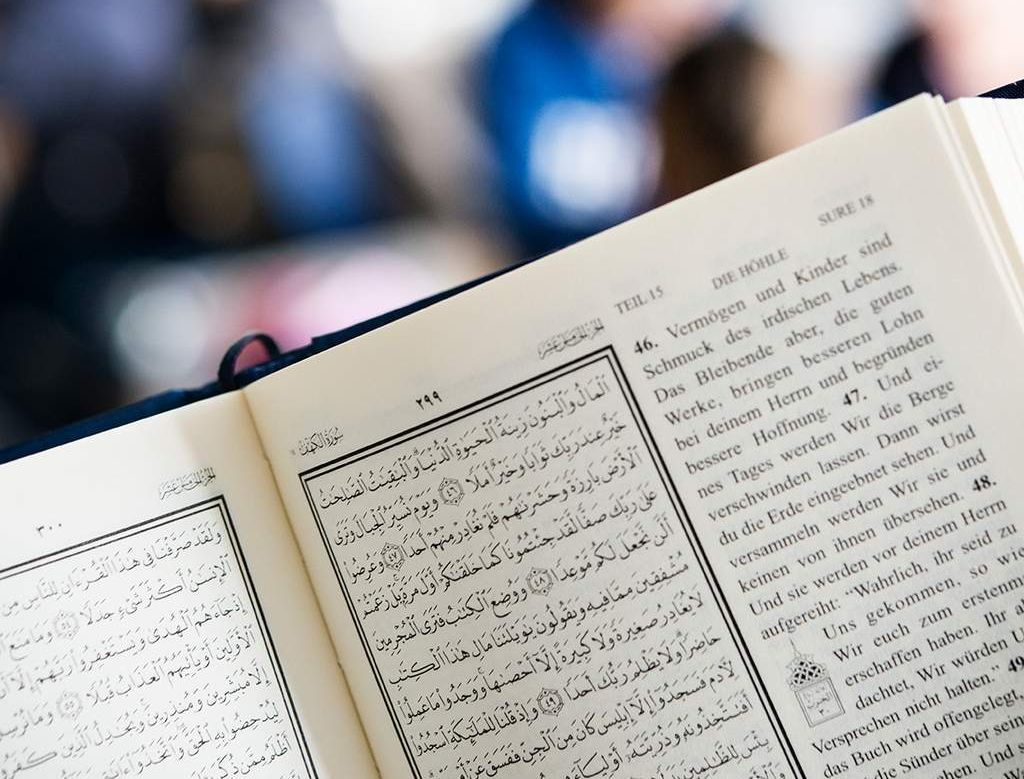 TEIL 15 DIE HÖHLE SURE 18
46. Vermögen und Kinder sind
Schmuck des irdischen Lebens.
Das Bleibende aber, die guten
Werke, bringen besseren Lohn
bei deinem Herrn und begründen
bessere Hoffnung. 47. Und ei-
nes Tages werden Wir die Berge
verschwinden lassen. Dann wirst
du die Erde eingeebnet sehen. Und
versammeln werden Wir sie und
keinen von ihnen übersehen. 48.
Und sie werden vor deinem Herrn
aufgereiht: "Wahrlich, ihr seid zu
Uns gekommen, so wie
Wir euch zum erstenm
erschaffen haben. Ihr a
dachtet, Wir würden U
Versprechen nicht halten." 49
das Buch wird offengelegt,
die Sünder über sein
Und s
سُورَةُ الكَهْفِ ٢٩٩ الجُزْءُ الخَامِسَ عَشَرَ
ٱلْمَالُ وَٱلْبَنُونَ زِينَةُ ٱلْحَيَوٰةِ ٱلدُّنْيَا وَٱلْبَٰقِيَٰتُ ٱلصَّٰلِحَٰتُ
خَيْرٌ عِندَ رَبِّكَ ثَوَابًا وَخَيْرٌ أَمَلًا ٤٦ وَيَوْمَ نُسَيِّرُ ٱلْجِبَالَ وَتَرَى
ٱلْأَرْضَ بَارِزَةً وَحَشَرْنَٰهُمْ فَلَمْ نُغَادِرْ مِنْهُمْ أَحَدًا ٤٧ وَعُرِضُوا۟
عَلَىٰ رَبِّكَ صَفًّا لَّقَدْ جِئْتُمُونَا كَمَا خَلَقْنَٰكُمْ أَوَّلَ مَرَّةٍۭ بَلْ زَعَمْتُمْ
أَلَّن نَّجْعَلَ لَكُم مَّوْعِدًا ٤٨ وَوُضِعَ ٱلْكِتَٰبُ فَتَرَى ٱلْمُجْرِمِينَ
مُشْفِقِينَ مِمَّا فِيهِ وَيَقُولُونَ يَٰوَيْلَتَنَا مَالِ هَٰذَا ٱلْكِتَٰبِ
لَا يُغَادِرُ صَغِيرَةً وَلَا كَبِيرَةً إِلَّآ أَحْصَىٰهَا وَوَجَدُوا۟ مَا عَمِلُوا۟
حَاضِرًا وَلَا يَظْلِمُ رَبُّكَ أَحَدًا ٤٩ وَإِذْ قُلْنَا لِلْمَلَٰٓئِكَةِ ٱسْجُدُوا۟
لِءَادَمَ فَسَجَدُوٓا۟ إِلَّآ إِبْلِيسَ كَانَ مِنَ ٱلْجِنِّ فَفَسَقَ عَنْ
أَفَتَتَّخِذُونَهُۥ وَذُرِّيَّتَهُۥٓ أَوْلِيَآءَ
بِئْسَ لِلظَّٰلِمِينَ
٣٠٠ الجُزْءُ الخَامِسَ عَشَرَ
وَلَقَدْ صَرَّفْنَا فِى هَٰذَا ٱلْقُرْءَانِ لِلنَّاسِ مِن
ٱلْإِنسَٰنُ أَكْثَرَ شَىْءٍ جَدَلًا ٥٤ وَمَا مَنَعَ
إِذْ جَآءَهُمُ ٱلْهُدَىٰ وَيَسْتَغْفِرُوا۟ رَبَّهُمْ إِلَّآ أَن
ٱلْأَوَّلِينَ أَوْ يَأْتِيَهُمُ ٱلْعَذَابُ قُبُلًا ٥٥ وَمَا نُرْسِلُ
إِلَّا مُبَشِّرِينَ وَمُنذِرِينَ وَيُجَٰدِلُ ٱلَّذِينَ كَفَرُوا۟
لِيُدْحِضُوا۟ بِهِ ٱلْحَقَّ وَٱتَّخَذُوٓا۟
أَظْلَمُ مِمَّن ذُكِّرَ